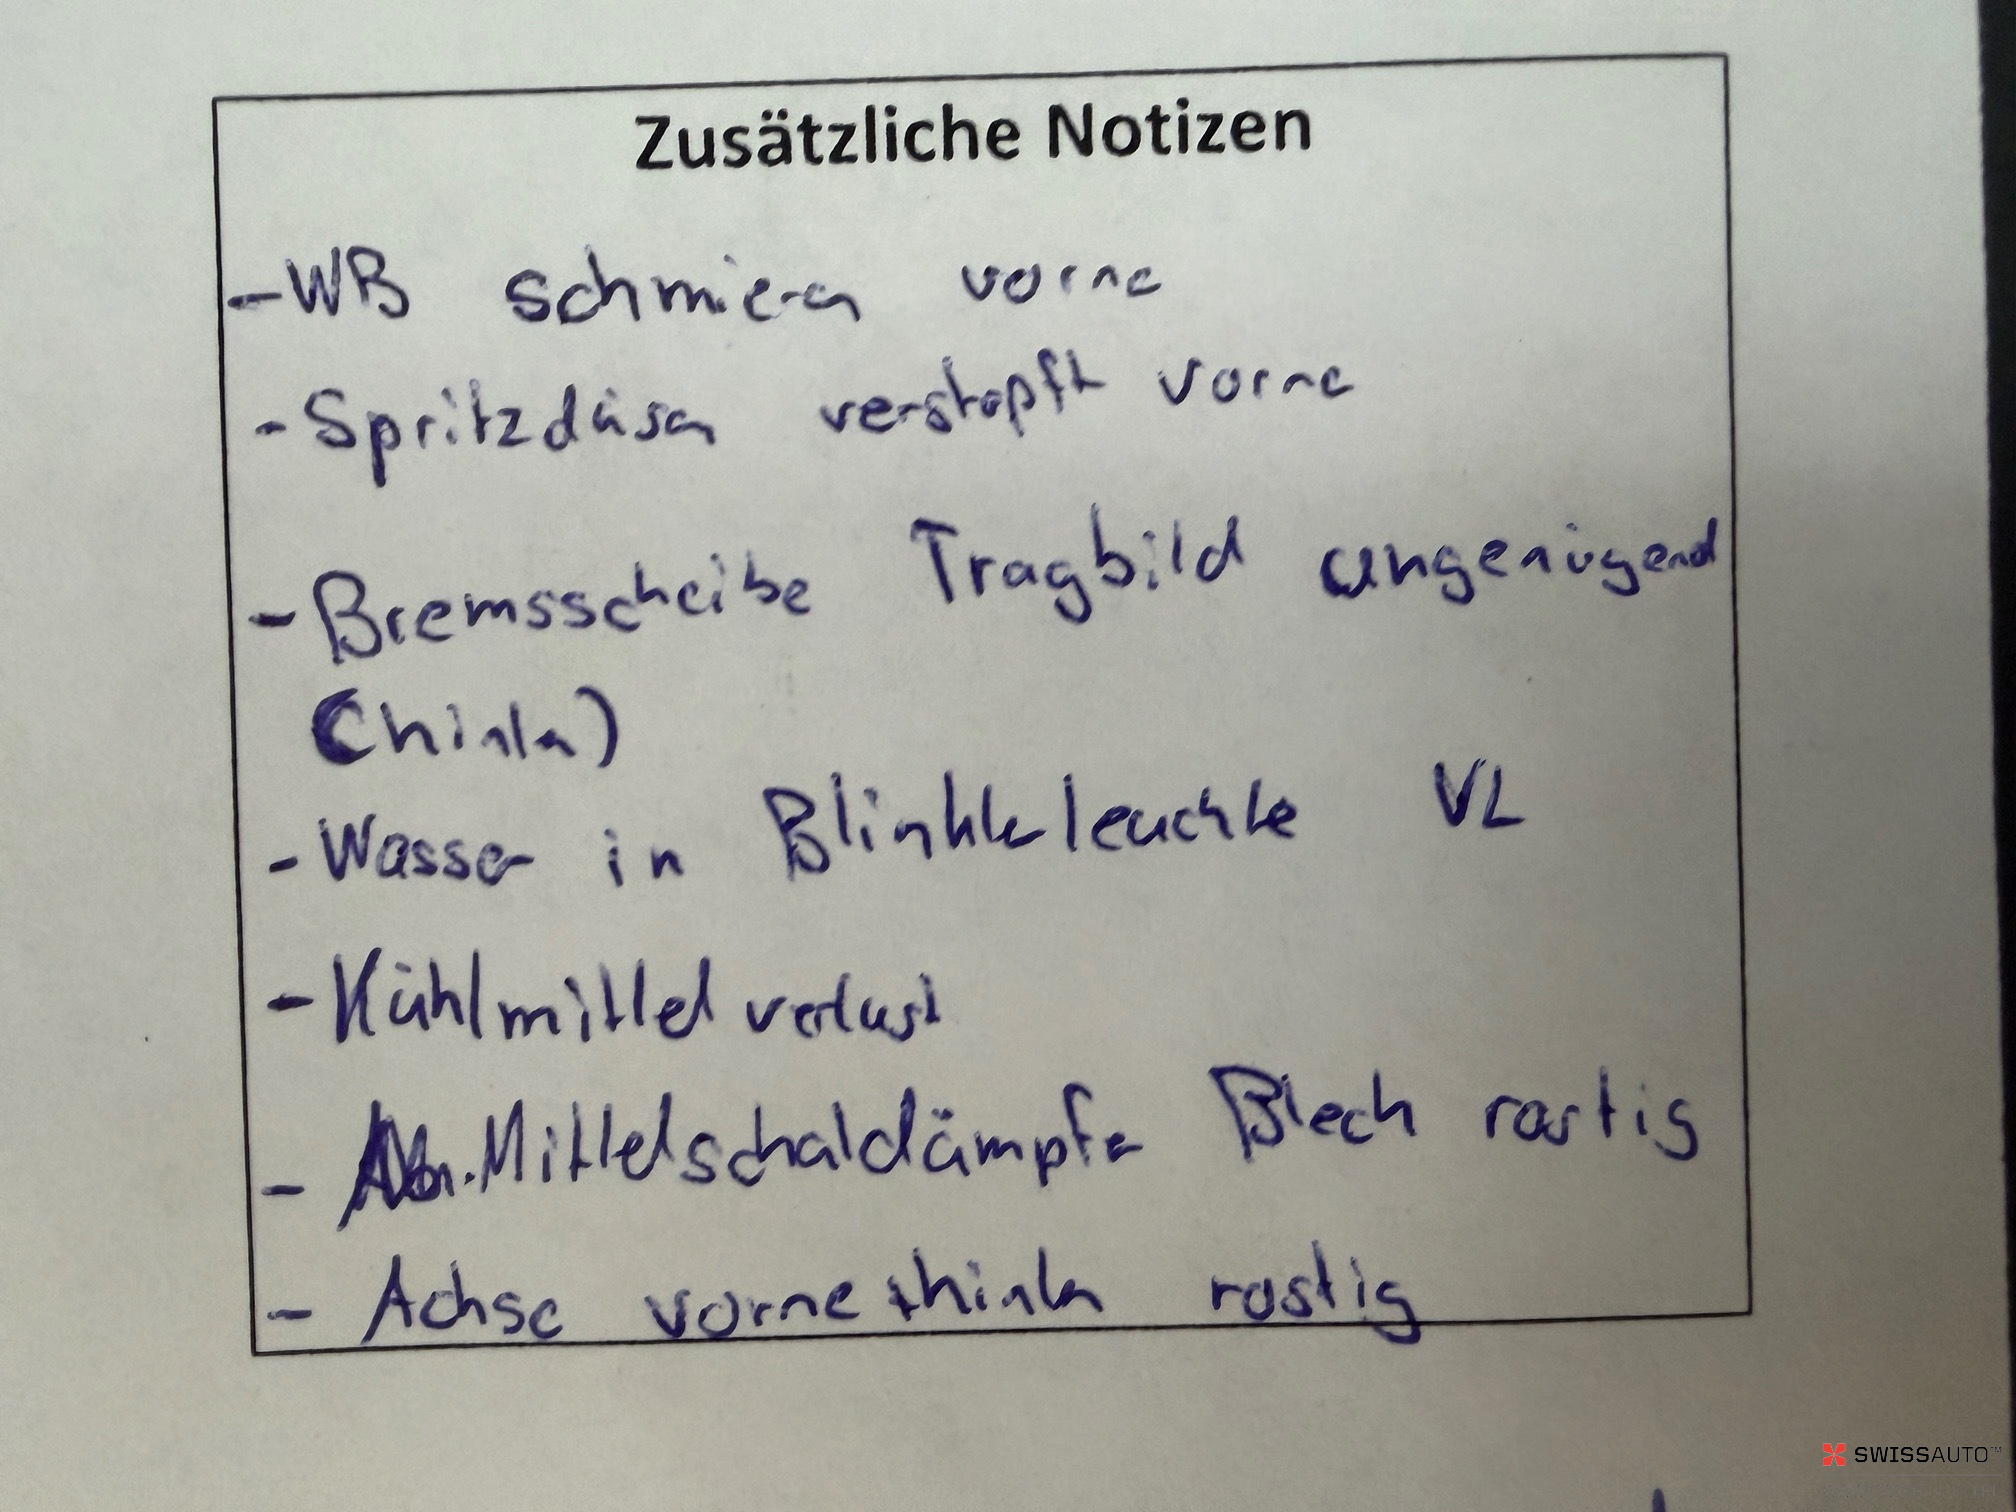 Zusätzliche Notizen
- WB schmieren vorne
- Spritzdüsen verstopft vorne
- Bremsscheibe Tragbild ungenügend
(hinten)
- Wasser in Blinkerleuchte VL
- Kühlmittelverlust
- Mittelschaldämpfer Blech rostig
- Achse vorne + hinten rostig
SWISSAUTO™